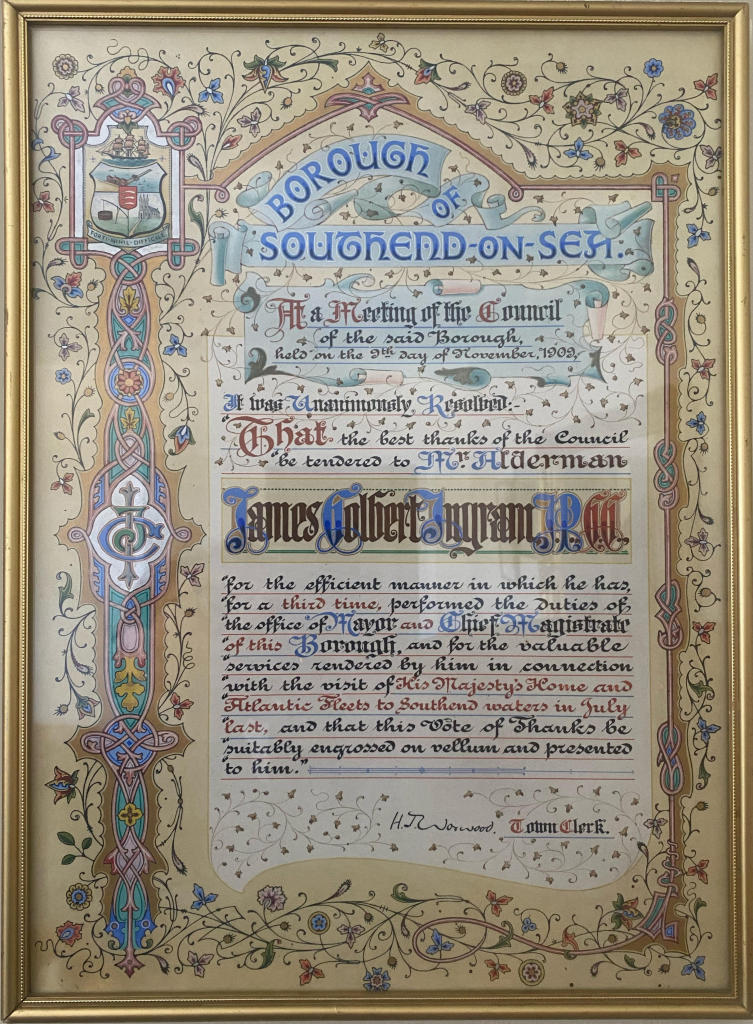 FORTI NIHIL DIFFICILE
BOROUGH
OF
SOUTHEND-ON-SEA.
At a Meeting of the Council
of the said Borough,
held on the 9th day of November, 1909,
It was Unanimously Resolved:-
"That the best thanks of the Council
"be tendered to Mr. Alderman
James Colbert Ingram, J.P. C.C.,
"for the efficient manner in which he has,
"for a third time, performed the duties of,
"the office of Mayor and Chief Magistrate
"of this Borough, and for the valuable
"services rendered by him in connection
"with the visit of His Majesty's Home and
"Atlantic Fleets to Southend waters in July
"last, and that this Vote of Thanks be
"suitably engrossed on vellum and presented
"to him."
H.J. Worwood. Town Clerk.